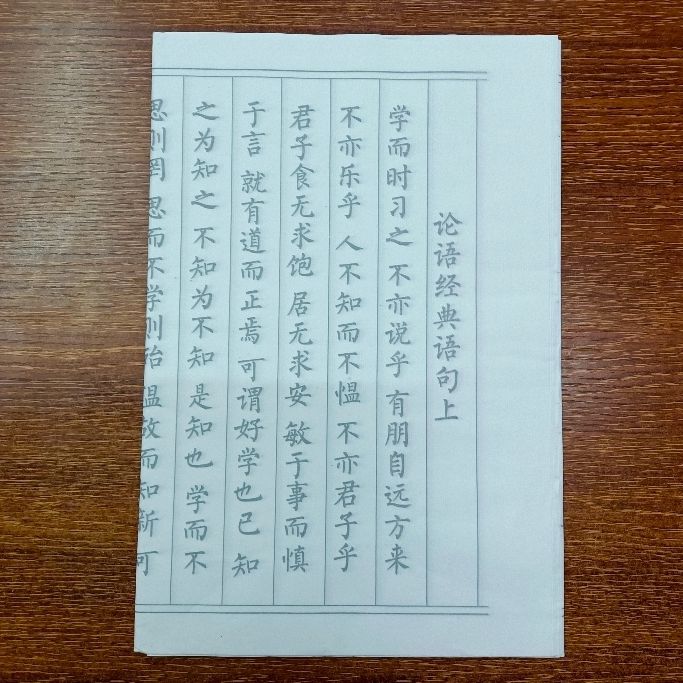 论语经典语句上
学而时习之 不亦说乎 有朋自远方来
不亦乐乎 人不知而不愠 不亦君子乎
君子食无求饱 居无求安 敏于事而慎
于言 就有道而正焉 可谓好学也已 知
之为知之 不知为不知 是知也 学而不
思则罔 思而不学则殆 温故而知新 可